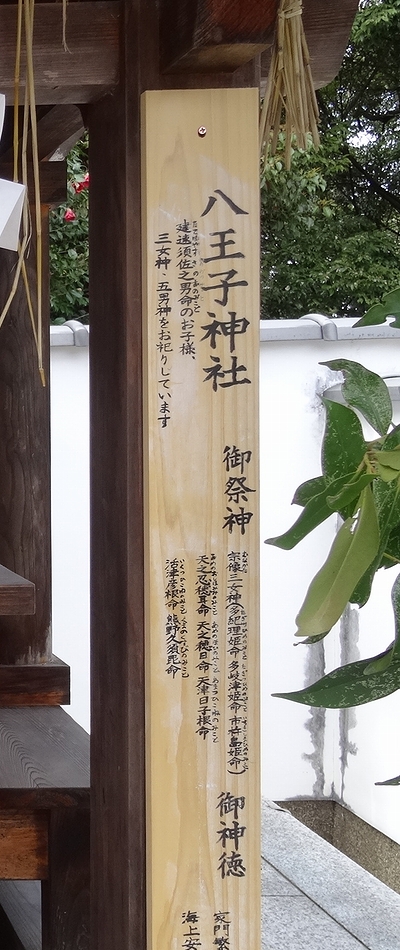 八王子神社
建速須佐之男命のお子様、
三女神・五男神をお祀りしています
御祭神
宗像三女神(多紀理姫命 多岐津姫命 市杵島姫命)
天之忍穂耳命 天之穂日命 天津日子根命
活津彦根命 熊野久須毘命
御神徳
家門繁
海上安